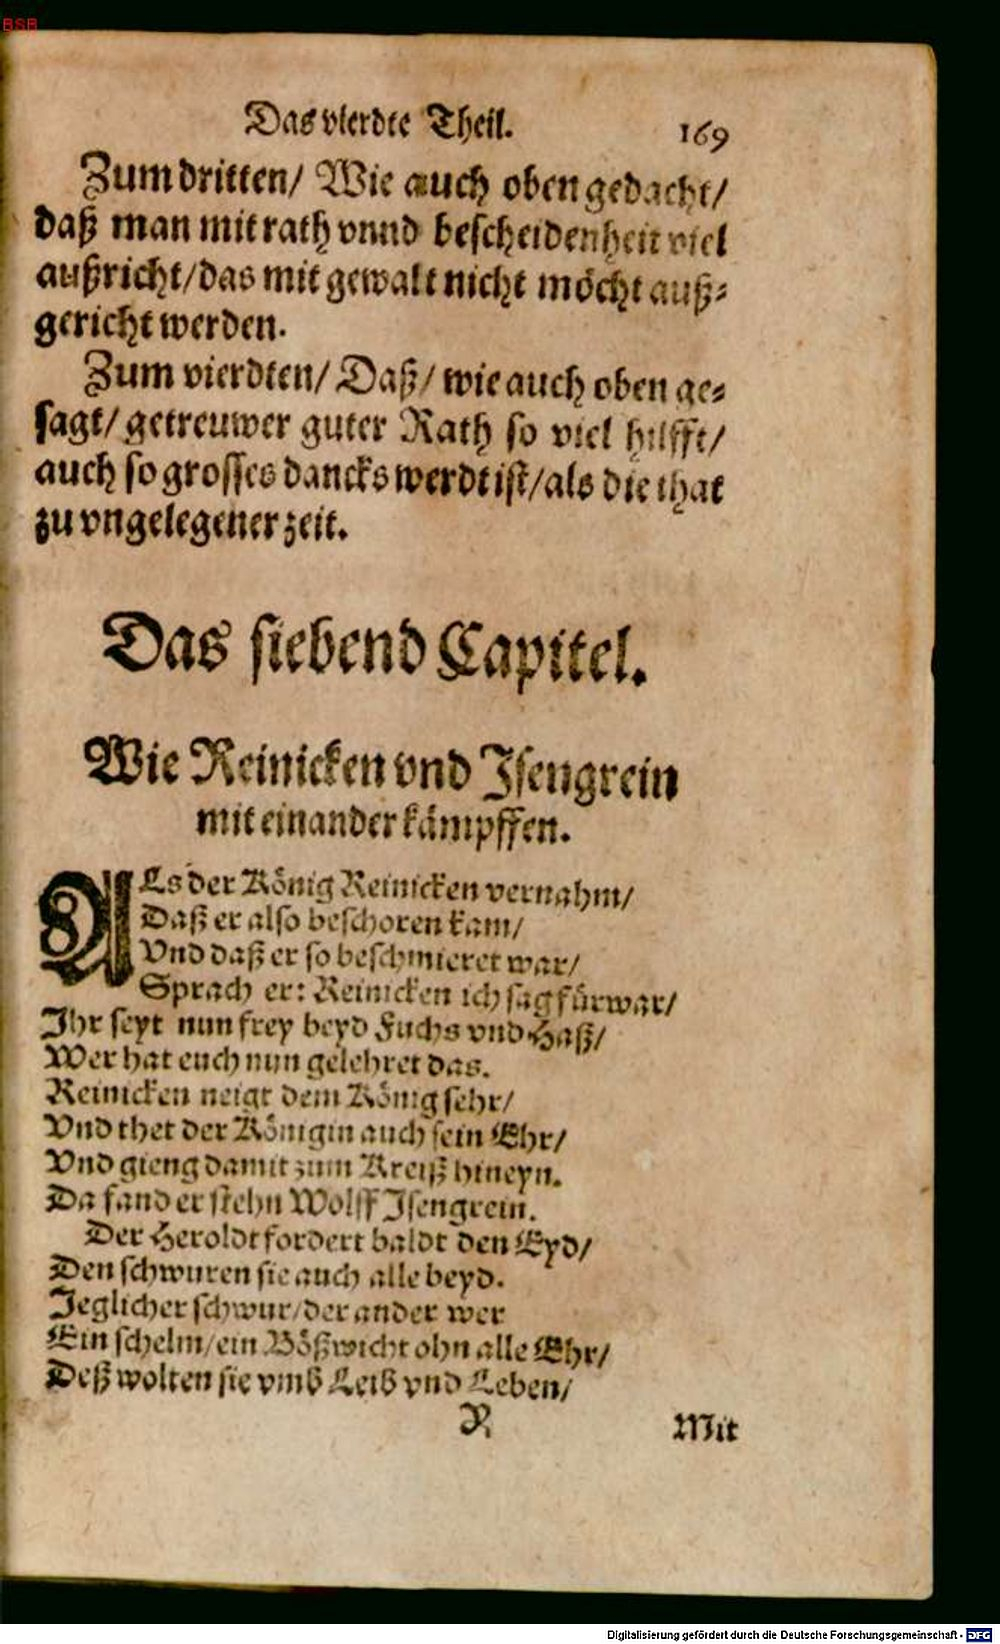 BSB
Das vierdte Theil. 169
Zum dritten/ Wie auch oben gedacht/
daß man mit rath vnnd bescheidenheit viel
außricht/das mit gewalt nicht möcht auß⸗
gericht werden.
Zum vierdten/ Daß/ wie auch oben ge⸗
sagt/ getreuwer guter Rath so viel hilfft/
auch so grosses dancks werdt ist/als die that
zu vngelegener zeit.
Das siebend Capitel.
Wie Reinicken vnd Isengrein
mit einander kämpffen.
ALs der König Reinicken vernahm/
Daß er also beschoren kam/
Vnd daß er so beschmieret war/
Sprach er: Reinicken ich sag fürwar/
Ihr seyt nun frey beyd Fuchs vnd Haß/
Wer hat euch nun gelehret das.
Reinicken neigt dem König sehr/
Vnd thet der Königin auch sein Ehr/
Vnd gieng damit zum Kreiß hineyn.
Da fand er stehn Wolff Isengrein.
Der Heroldt fordert baldt den Eyd/
Den schwuren sie auch alle beyd.
Jeglicher schwur/der ander wer
Ein schelm/ein Bößwicht ohn alle Ehr/
Deß wolten sie vmb Leib vnd Leben/
Y Mit
Digitalisierung gefördert durch die Deutsche Forschungsgemeinschaft - DFG